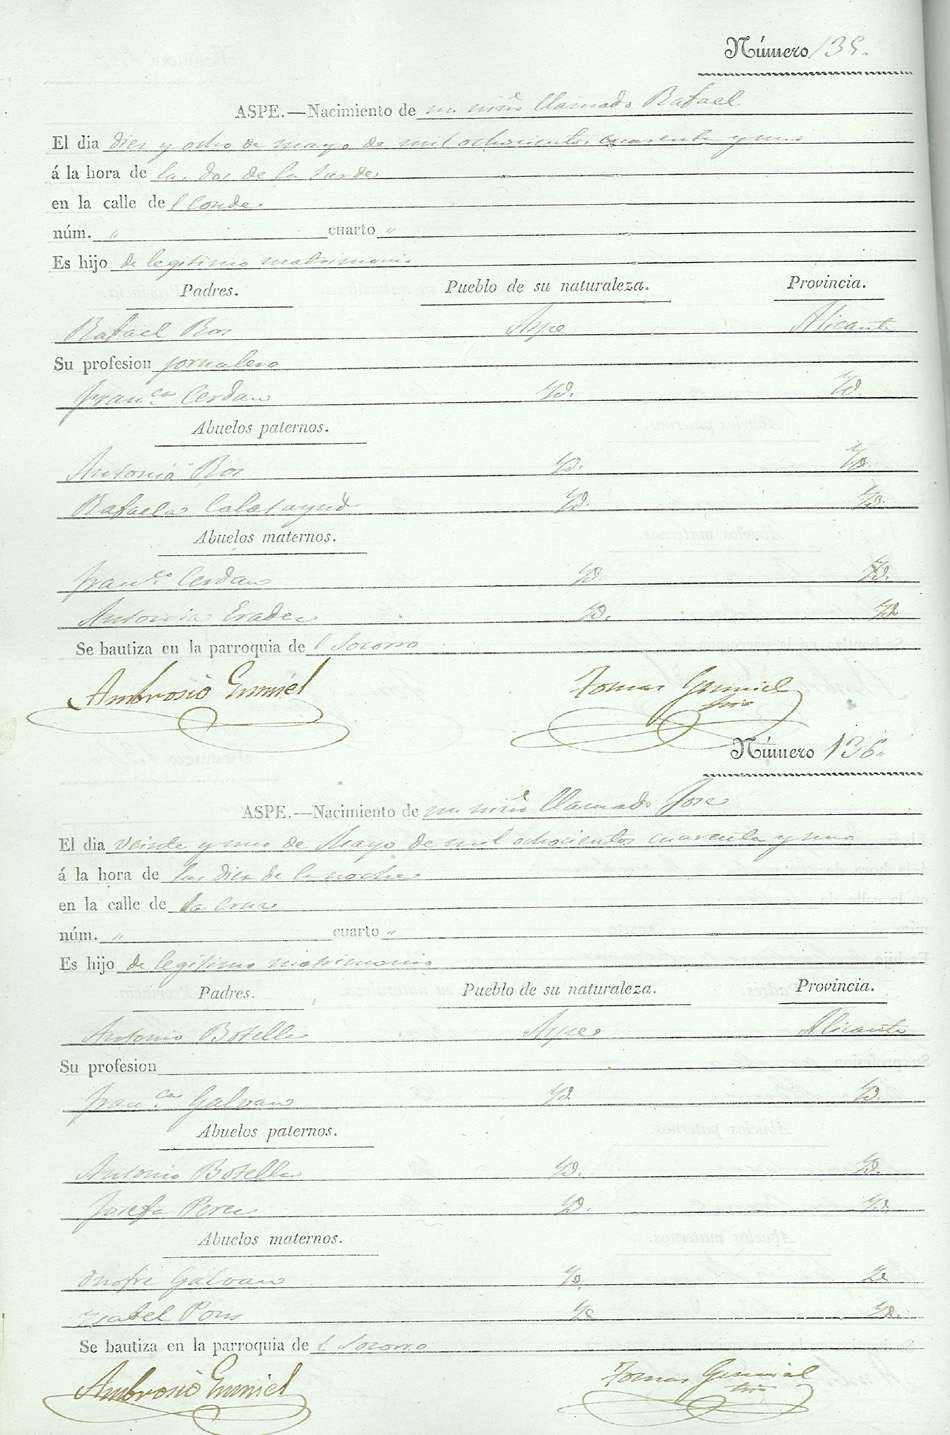 Número 135.
ASPE.—Nacimiento de un niño llamado Rafael
El dia diez y ocho de mayo de mil ochocientos cuarenta y uno
á la hora de las dos de la tarde
en la calle de l Conde.
núm. " cuarto "
Es hijo de legitimo matrimonio
Padres. Pueblo de su naturaleza. Provincia.
Rafael Bos Aspe Alicante
Su profesion jornalero
Fran.ca Cerdan Yd. Yd.
Abuelos paternos.
Antonio Bos Yd. Yd.
Rafaela Calatayud Yd. Yd.
Abuelos maternos.
Fran.co Cerdan Yd. Yd.
Antonia Yd. Yd.
Se bautiza en la parroquia de l Socorro
Ambrosio Gumiel Tomas Gumiel
Número 136.
ASPE.—Nacimiento de un niño llamado Jose
El dia veinte y uno de Mayo de mil ochocientos cuarenta y uno
á la hora de las diez de la noche
en la calle de la Cruz
núm. " cuarto "
Es hijo de legitimo matrimonio
Padres. Pueblo de su naturaleza. Provincia.
Antonio Botella Aspe Alicante
Su profesion
Fran.ca Galvan Yd. Yd.
Abuelos paternos.
Antonio Botella Yd. Yd.
Josefa Perez Yd. Yd.
Abuelos maternos.
Onofre Galvan Yd. Yd.
Ysabel Pons Yd. Yd.
Se bautiza en la parroquia de l Socorro
Ambrosio Gumiel Tomas Gumiel